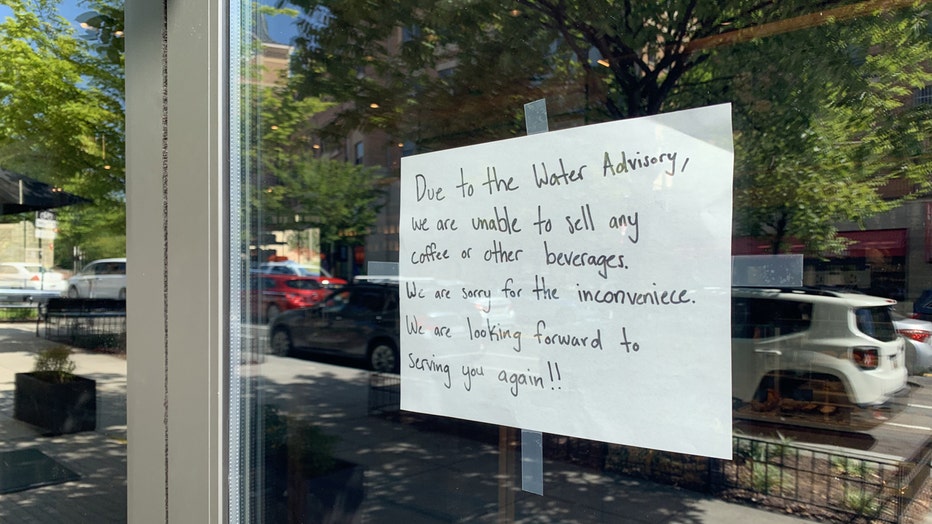 Due to the Water Advisory,
we are unable to sell any
coffee or other beverages.
We are sorry for the inconveniece.
We are looking forward to
serving you again!!